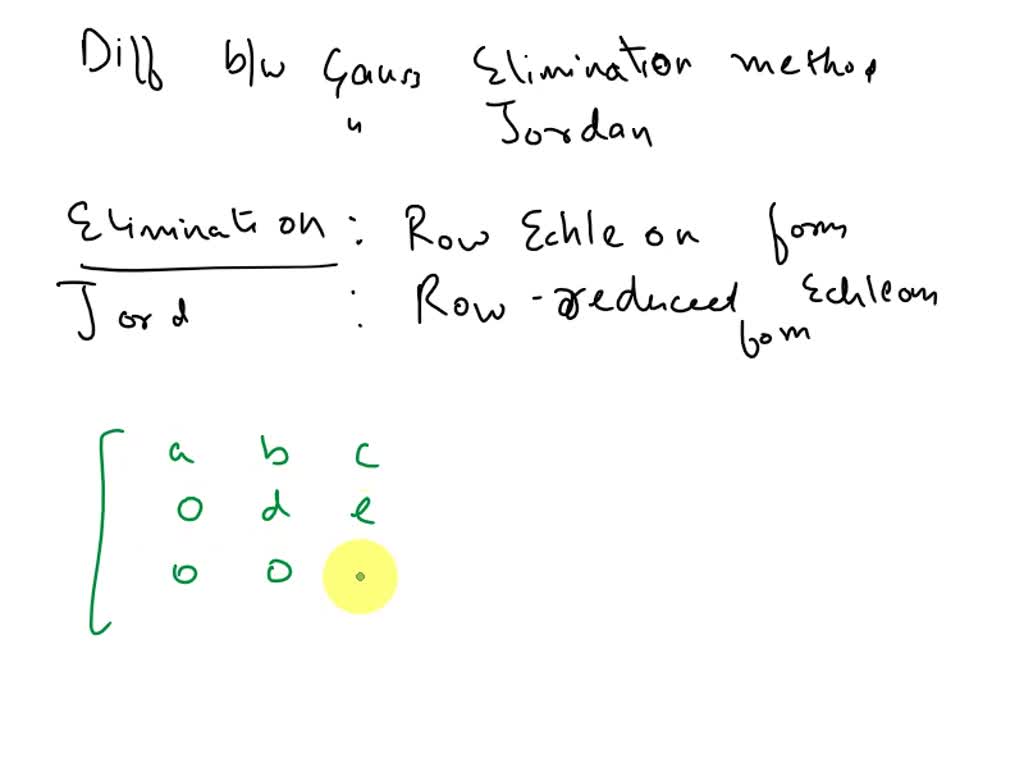 Diff b/w Gauss Elimination method
" Jordan
Elimination : Row Echleon form
Jord : Row-reduced Echleon
form
a b c
0 d e
0 0